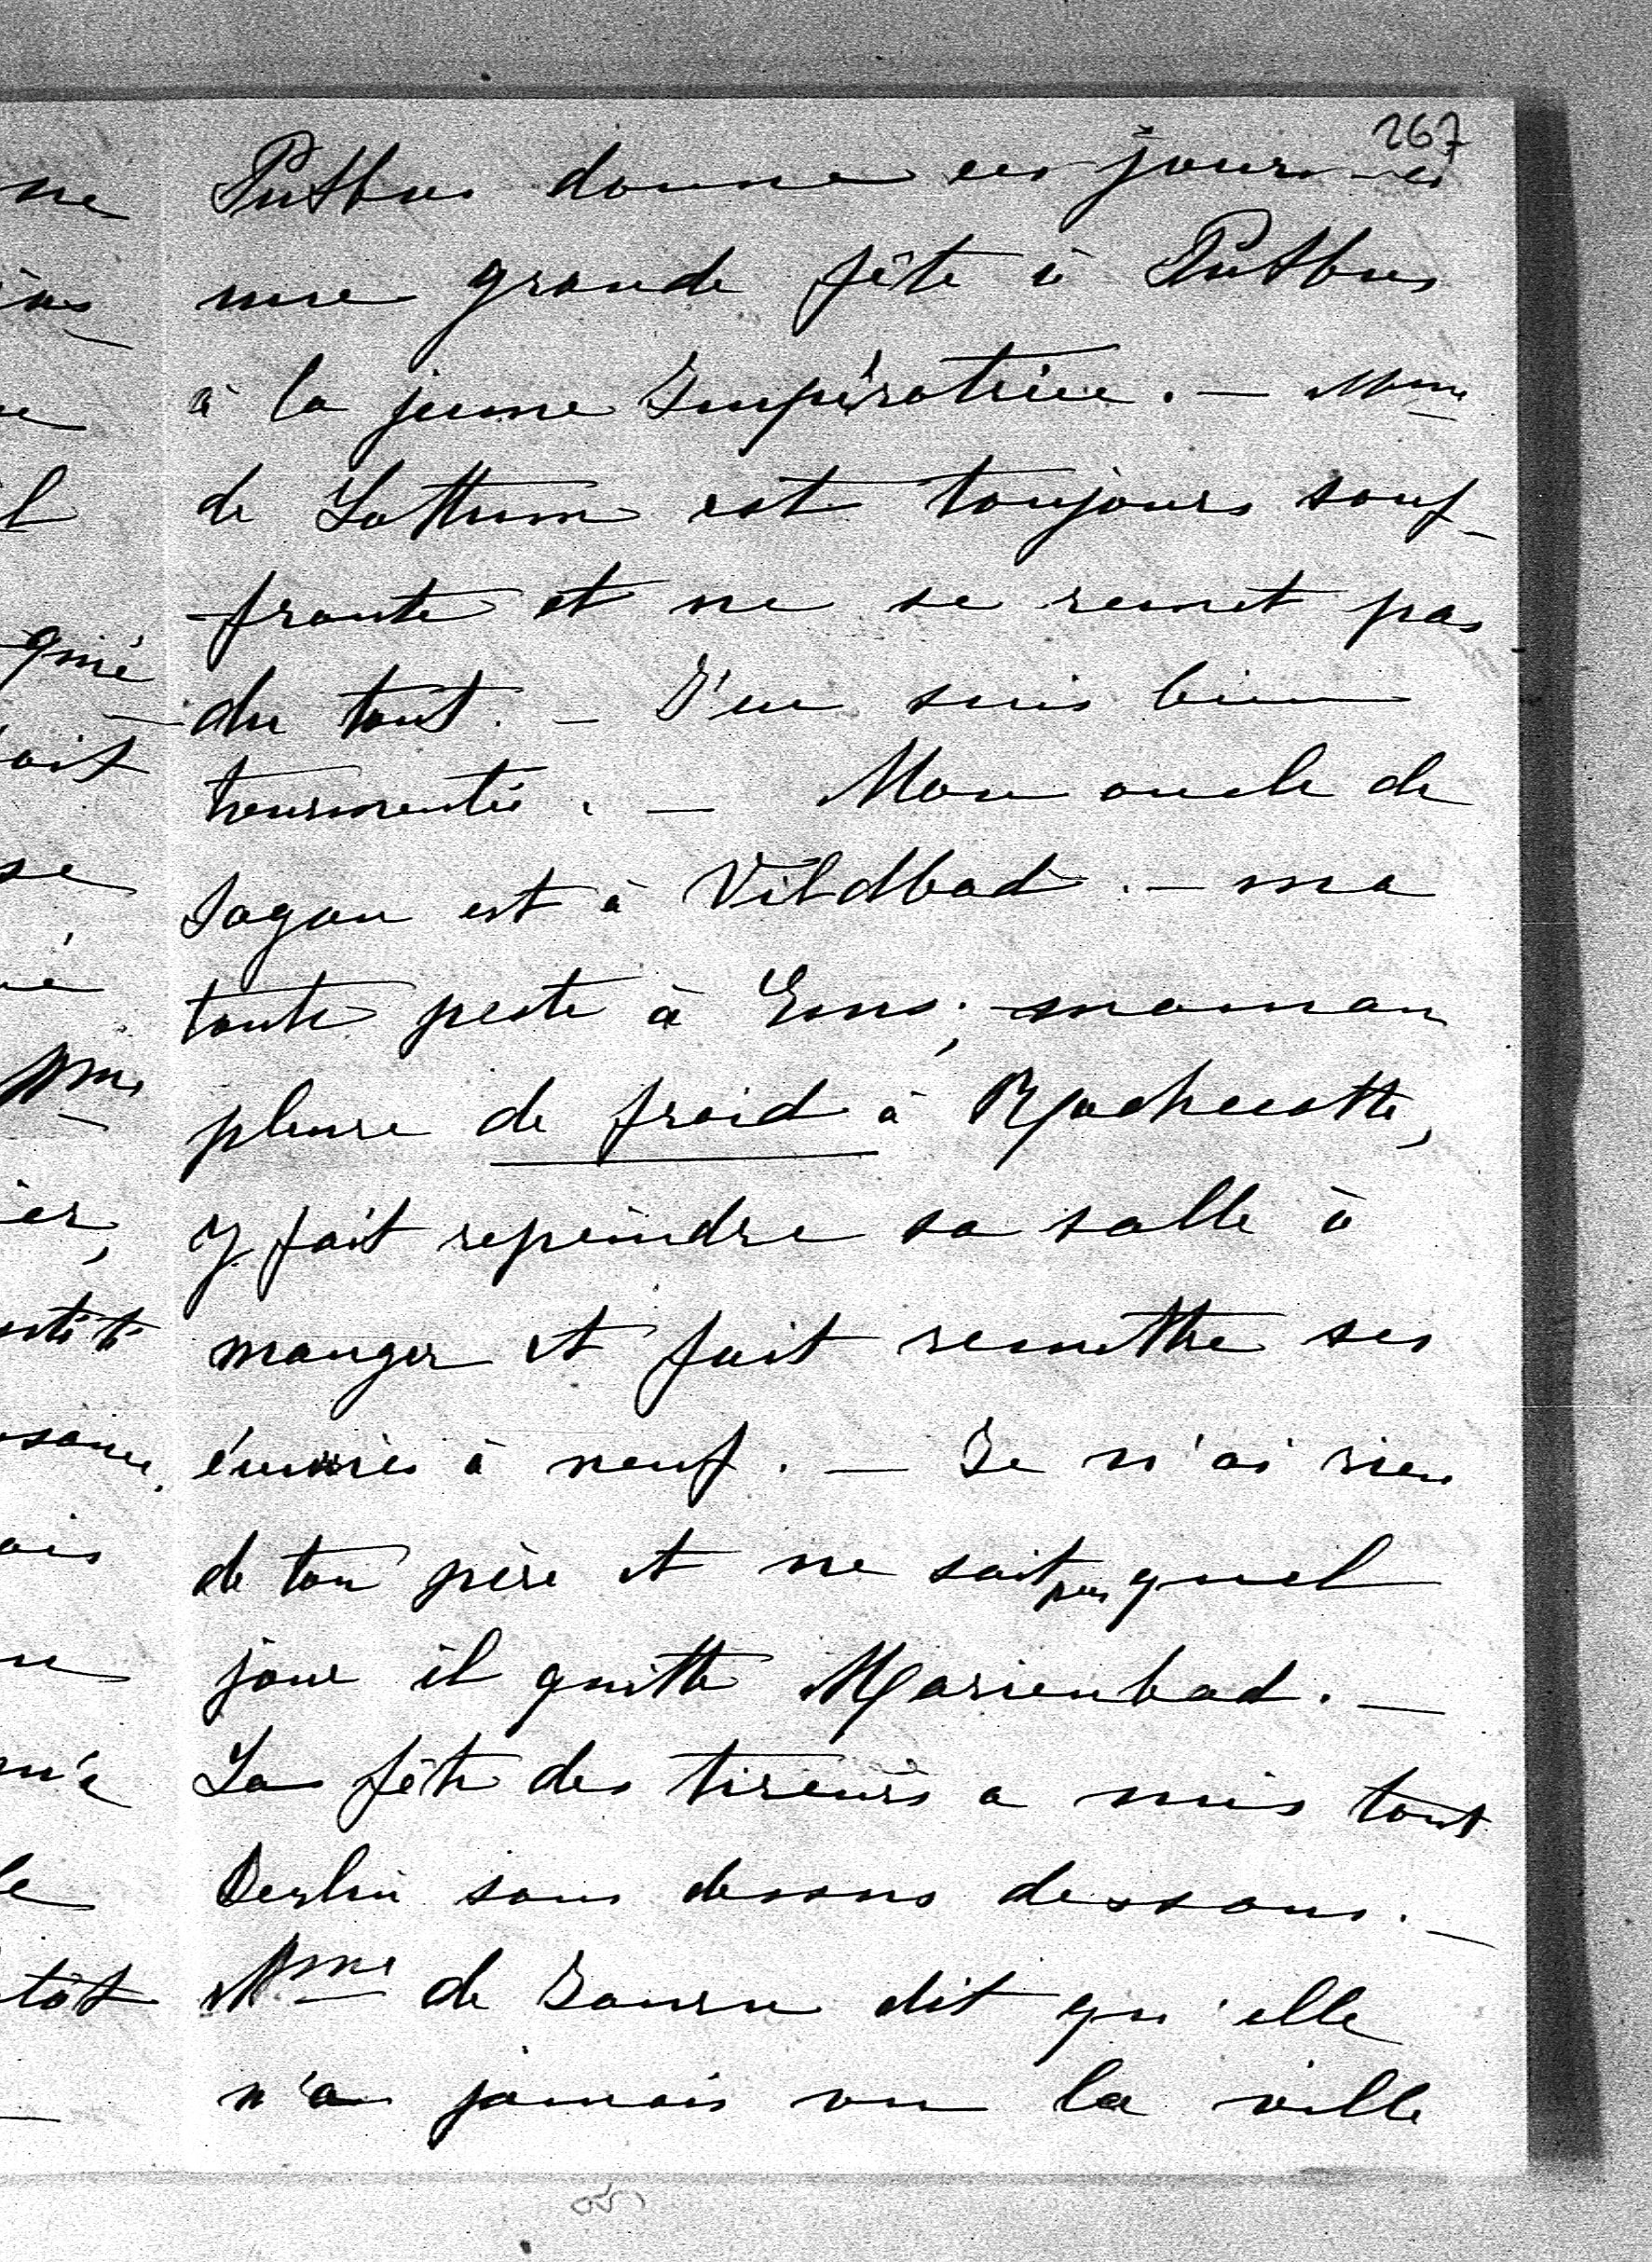 267
Putbus donne ces jours-ci
une grande fête à Putbus
à la jeune Impératrice. — Mme
de Lottum est toujours souf-
frante et ne se remet pas
du tout. — J'en suis bien
tourmentée. — Mon oncle de
Sagan est à Vildbad. — ma
tante peste à Ems; maman
pleure de froid à Rochecotte,
y fait repeindre sa salle à
manger et fait remettre ses
écuries à neuf. — Je n'ai rien
de ton père et ne sait pas quel
jour il quitte Marienbad. —
La fête des tireurs a mis tout
Berlin sans dessus dessous. —
Mme de dit qu'elle
n'a jamais vu la ville